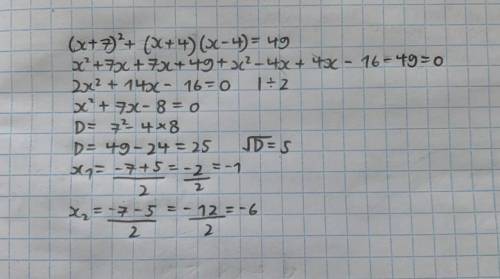 (x+7)²+ (x+4)(x-4)= 49
x²+7x+7x+49+x²-4x+4x-16-49=0
2x²+14x-16=0 |÷2
x²+7x-8=0
D= 7²-4*8
D= 49-24=25 √D=5
x₁= (-7+5)/2 = -2/2 =-1
x₂= (-7-5)/2 = -12/2 =-6